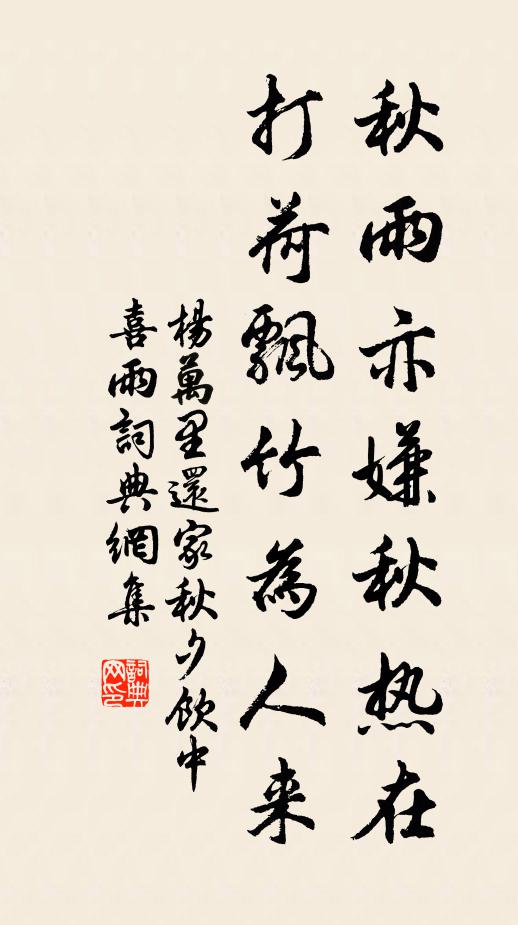 秋雨亦嫌秋热在
打荷飄竹為人来
楊萬里還家秋夕飲中
喜雨詞典網集
詞典
网印